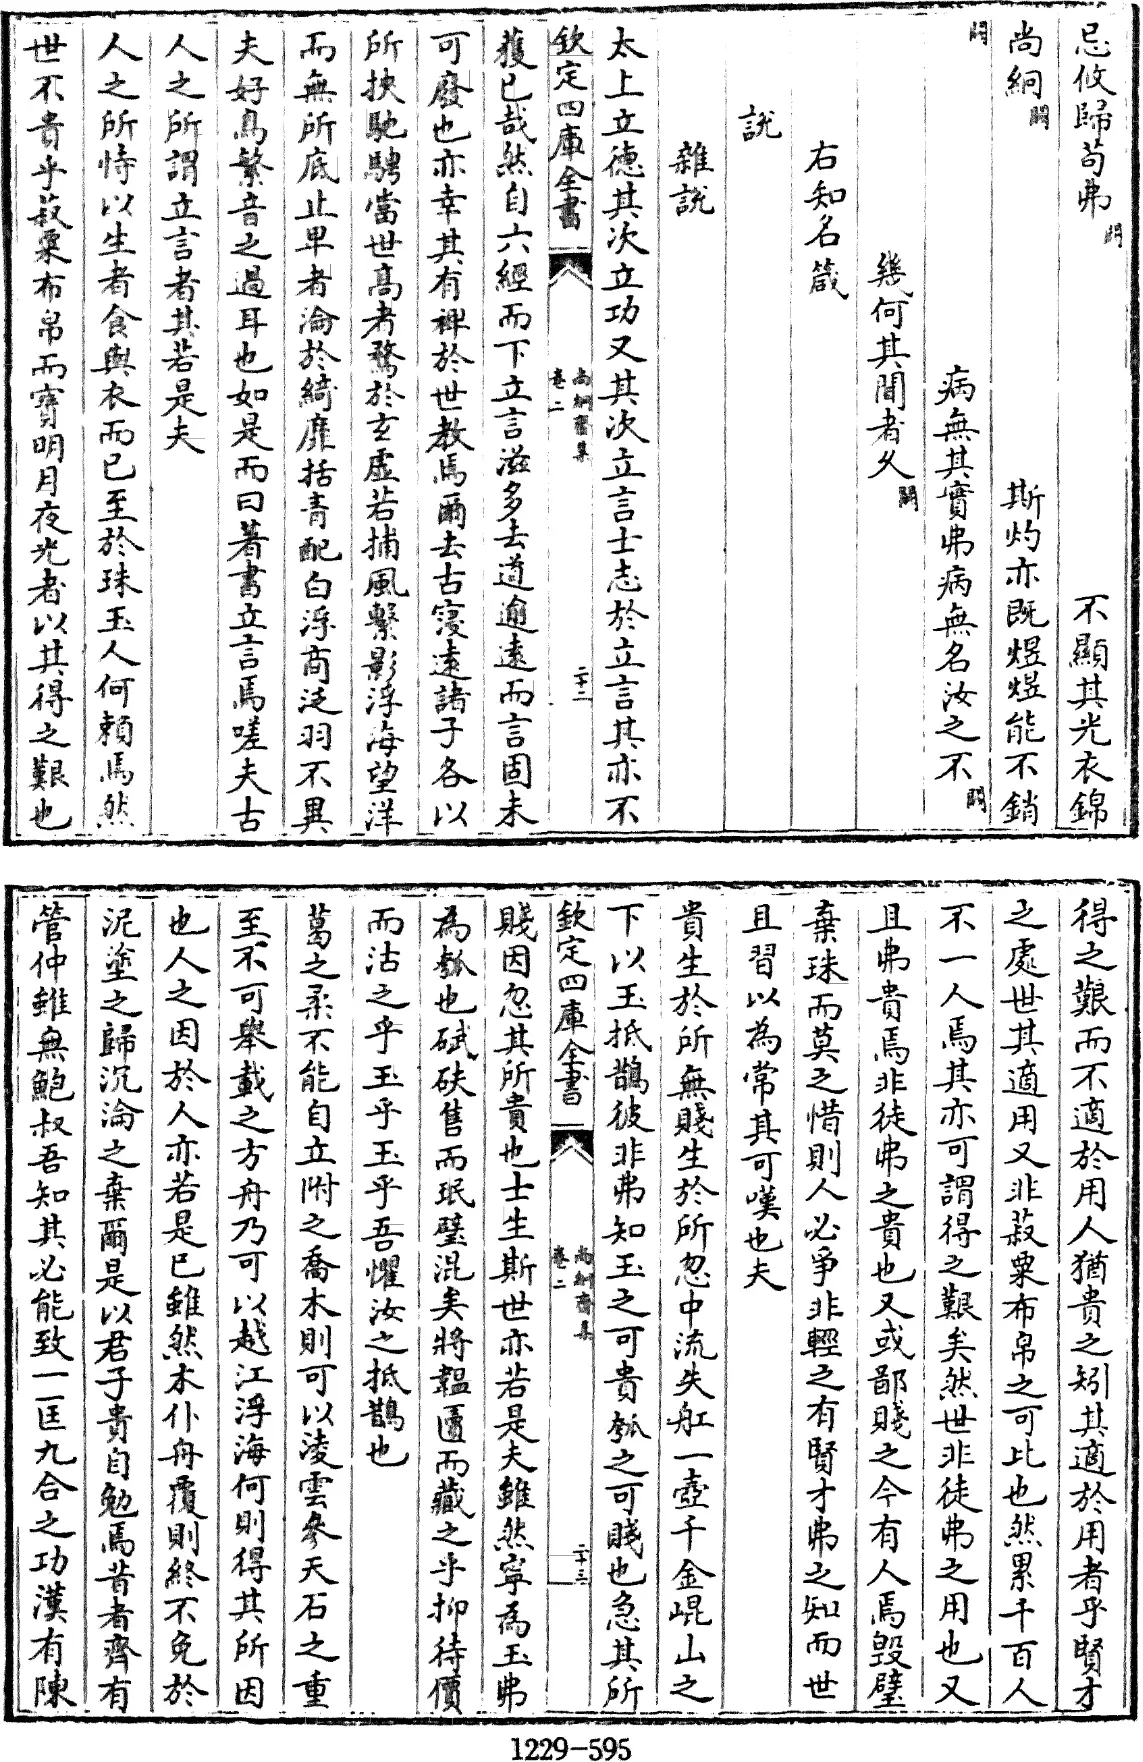 忌攸歸苟弗闕不顯其光衣錦
尚絅闕斯灼亦既煜煜能不銷
闕病無其實弗病無名汝之不闕
幾何其聞者久闕
右知名箴
說
雜說
太上立德其次立功又其次立言士志於立言其亦不
欽定四庫全書
尚絅齋集
卷二
二十二
獲已哉然自六經而下立言滋多去道逾遠而言固未
可廢也亦幸其有裨於世教焉爾去古寖遠諸子各以
所挾馳騁當世高者騖於玄虛若捕風繫影浮海望洋
而無所底止卑者淪於綺靡括青配白浮商泛羽不異
夫好鳥繁音之過耳也如是而曰著書立言焉嗟夫古
人之所謂立言者其若是夫
人之所恃以生者食與衣而已至於珠玉人何賴焉然
世不貴乎菽粟布帛而寶明月夜光者以其得之艱也
得之艱而不適於用人猶貴之矧其適於用者乎賢才
之處世其適用又非菽粟布帛之可比也然累千百人
不一人焉其亦可謂得之艱矣然世非徒弗之用也又
且弗貴焉非徒弗之貴也又或鄙賤之今有人焉毀璧
棄珠而莫之惜則人必爭非輕之有賢才弗之知而世
且習以為常其可嘆也夫
貴生於所無賤生於所忽中流失舡一壺千金崐山之
下以玉抵鵲彼非弗知玉之可貴瓠之可賤也急其所
欽定四庫全書
尚絅齋集
卷二
二十三
賤因忽其所貴也士生斯世亦若是夫雖然寧為玉弗
為瓠也碔砆售而珉璧混矣將韞匵而藏之乎抑待價
而沽之乎玉乎玉乎吾懼汝之抵鵲也
葛之柔不能自立附之喬木則可以凌雲參天石之重
至不可舉載之方舟乃可以越江浮海何則得其所因
也人之因於人亦若是已雖然木仆舟覆則終不免於
泥塗之歸沉淪之棄爾是以君子貴自勉焉昔者齊有
管仲雖無鮑叔吾知其必能致一匡九合之功漢有陳
1229-595